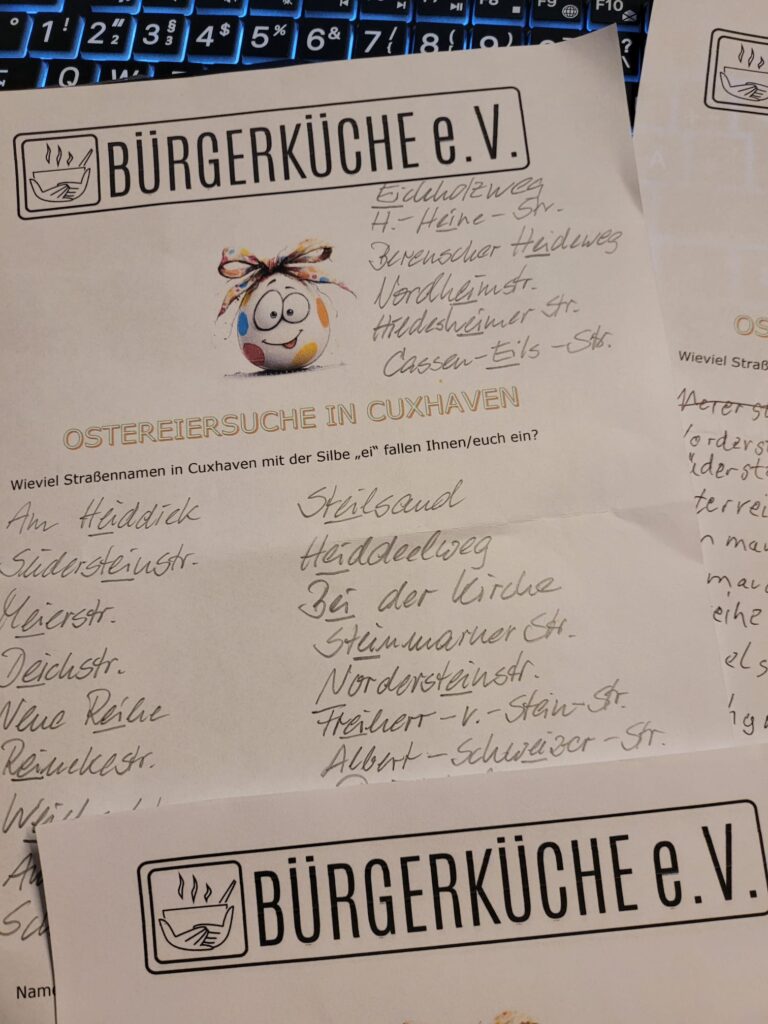 F9 F10
1 ! 2 " 2 3 § 3 4 $ 5 % 6 & 7 / { 8 (
Q W
BÜRGERKÜCHE e.V.
Eichholzweg
H.-Heine-Str.
Berenscher Heideweg
Nordheimstr.
Hildesheimer Str.
Cassen-Eils-Str.
OSTEREIERSUCHE IN CUXHAVEN
Wieviel Straßennamen in Cuxhaven mit der Silbe „ei" fallen Ihnen/euch ein?
Am Heiddiek
Südersteinstr.
Meierstr.
Deichstr.
Neue Reihe
Reinekestr.
Steilsand
Heiddeelweg
Bei der Kirche
Steinmarner Str.
Nordersteinstr.
Freiherr-v.-Stein-Str.
Albert-Schweizer-Str.
Name
OS
Wieviel Straß
BÜRGERKÜCHE e.V.